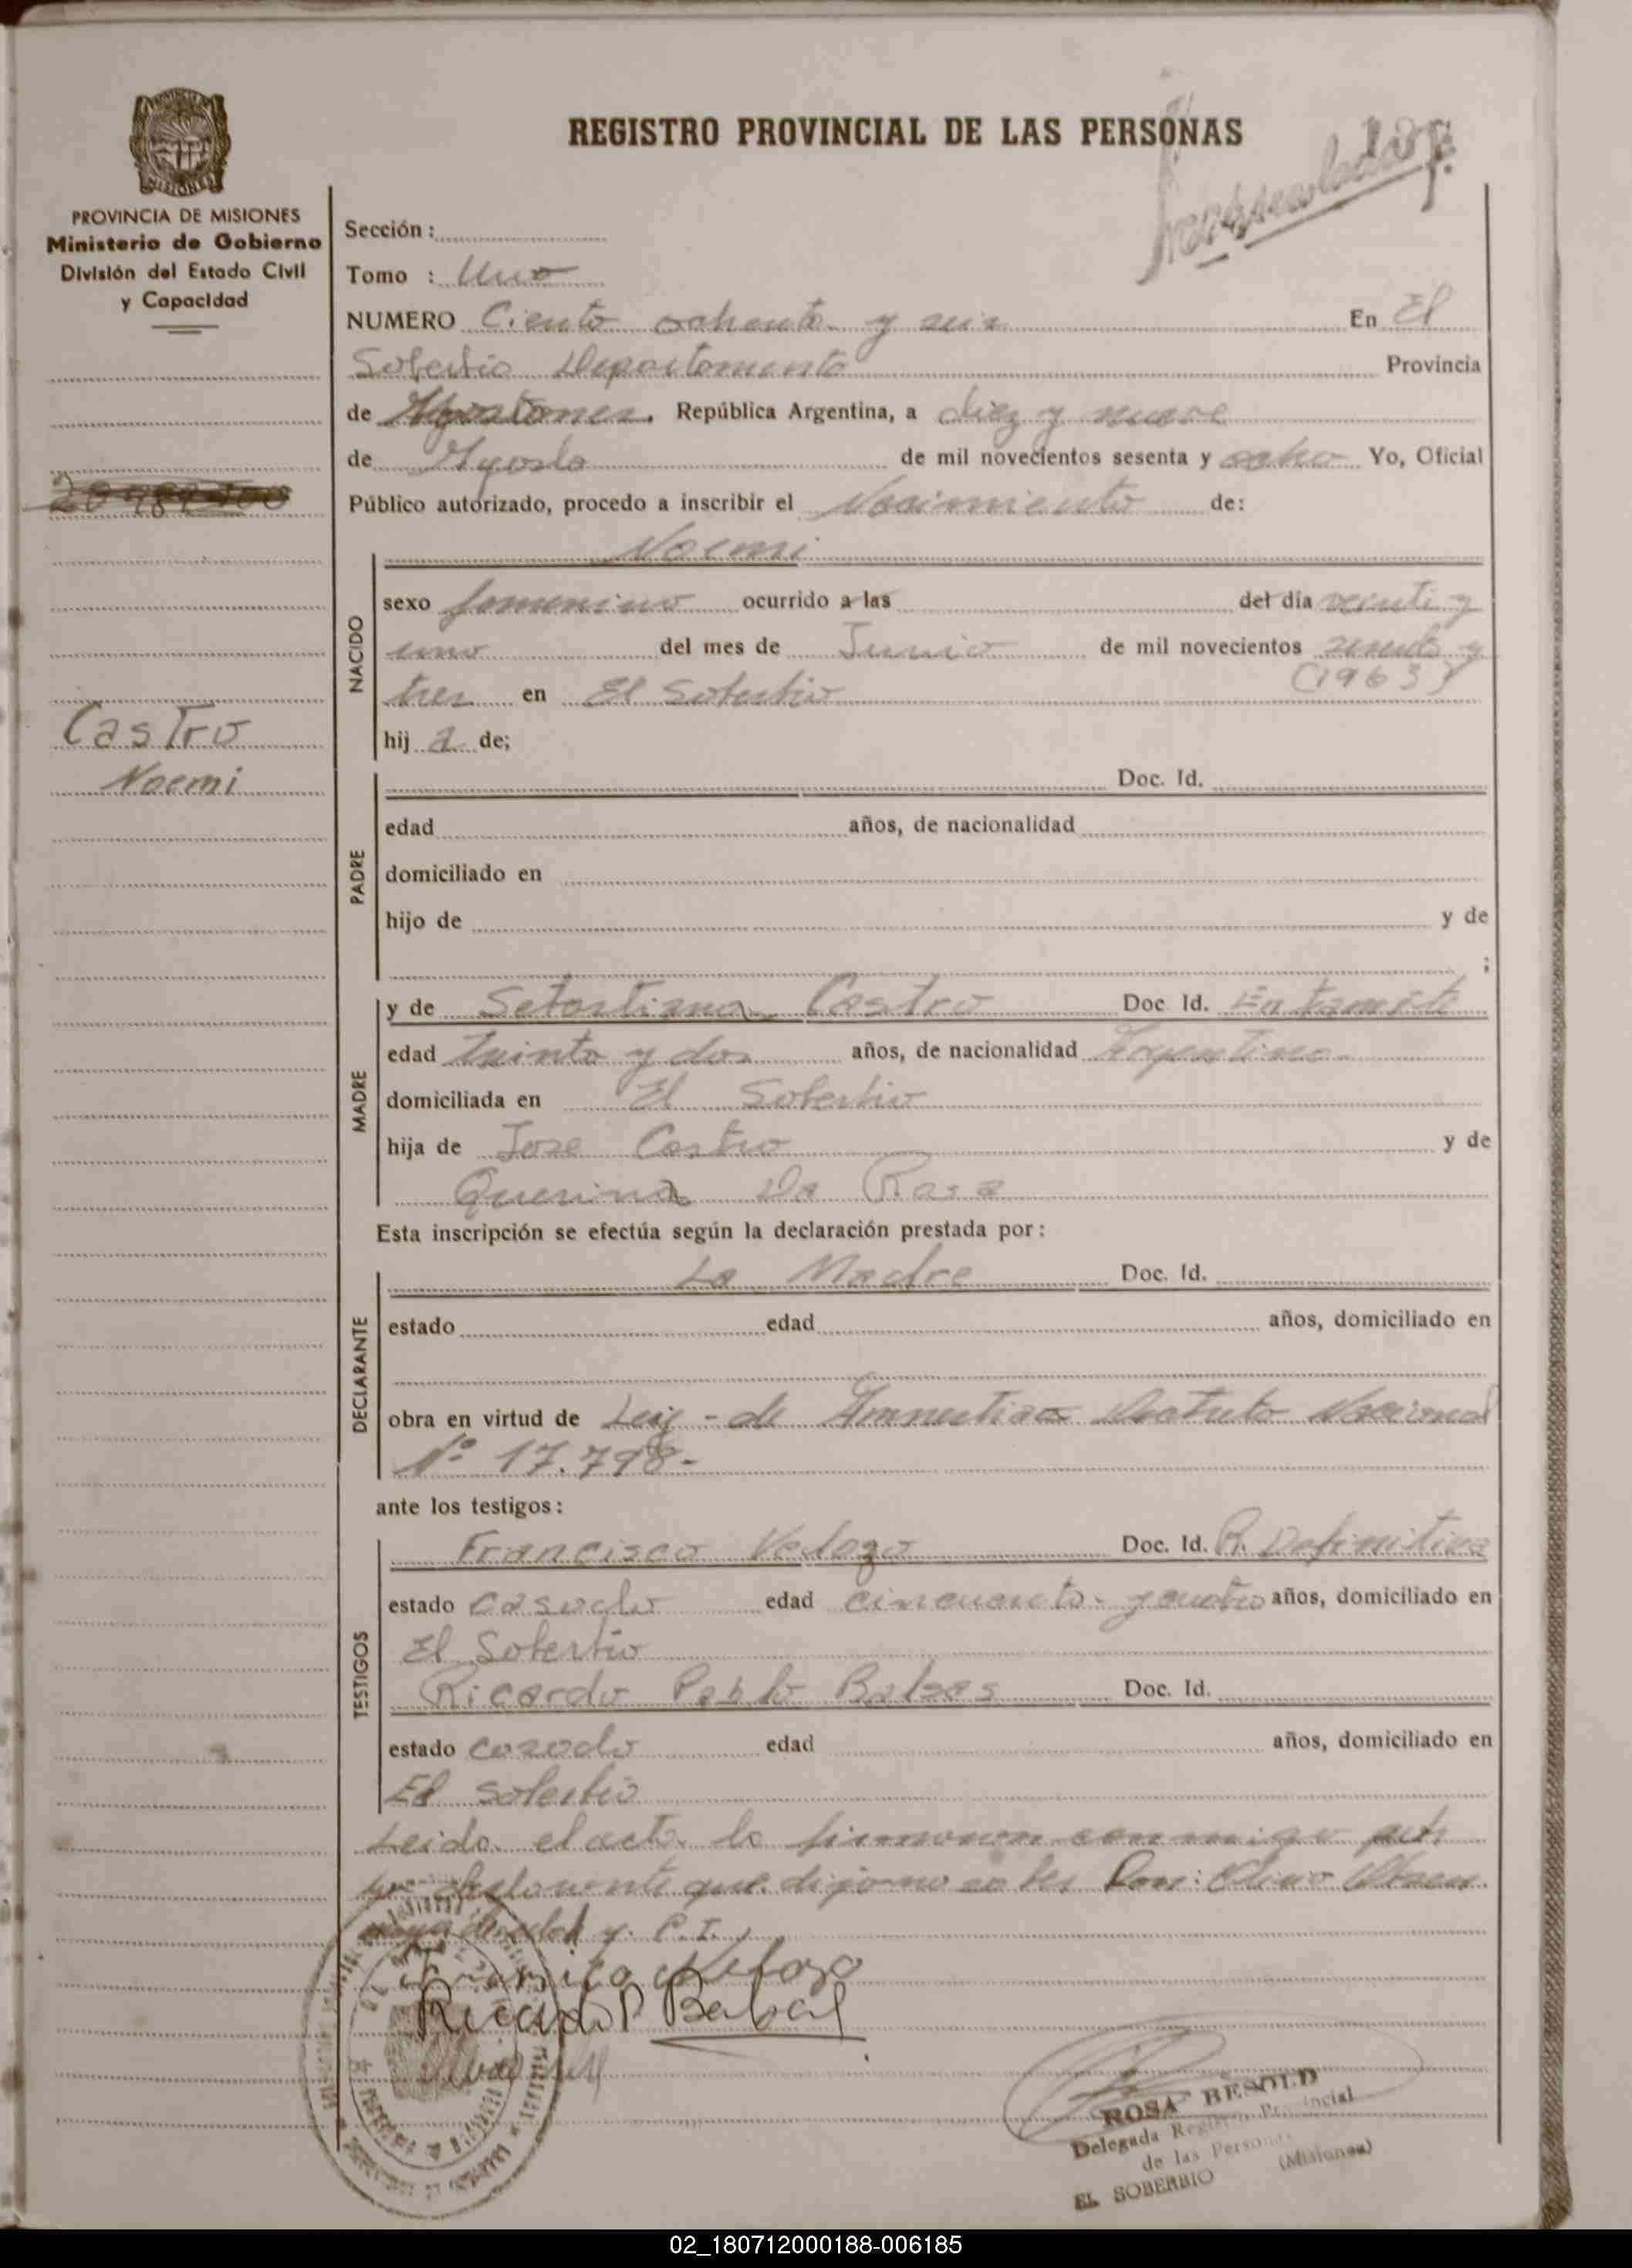 REGISTRO PROVINCIAL DE LAS PERSONAS
PROVINCIA DE MISIONES
Ministerio de Gobierno
División del Estado Civil
y Capacidad
Sección :
Tomo : Uno
NUMERO Ciento ochenta y seis En El
Soberbio Departamento Provincia
de República Argentina, a diez y nueve
de Agosto de mil novecientos sesenta y ocho Yo, Oficial
Público autorizado, procedo a inscribir el Nacimiento de:
Noemi
NACIDO
sexo femenino ocurrido a las del día veinti y
uno del mes de Junio de mil novecientos sesenta y
(1963)
tres en El Soberbio
hij a de;
Castro
Noemi
PADRE
Doc. Id.
edad años, de nacionalidad
domiciliado en
hijo de y de
;
MADRE
y de Sebastiana Castro Doc. Id. En tramite
edad treinta y dos años, de nacionalidad Argentina
domiciliada en El Soberbio
hija de Jose Castro y de
Querina Da Rosa
Esta inscripción se efectúa según la declaración prestada por :
DECLARANTE
La Madre Doc. Id.
estado edad años, domiciliado en
obra en virtud de Ley - de Amnistia Nacional
Nº 17.798-
ante los testigos :
TESTIGOS
Francisco Velozo Doc. Id. R. Definitiva
estado casado edad cincuenta y cuatro años, domiciliado en
El Soberbio
Ricardo Pablo Doc. Id.
estado casado edad años, domiciliado en
El Soberbio
Leida el acta la firmaron conmigo
que dijo no
P.I.
Velozo
Ricardo P.
ROSA BESOLD
Delegada Registro Provincial
de las Personas
EL SOBERBIO (Misiones)
02_180712000188-006185